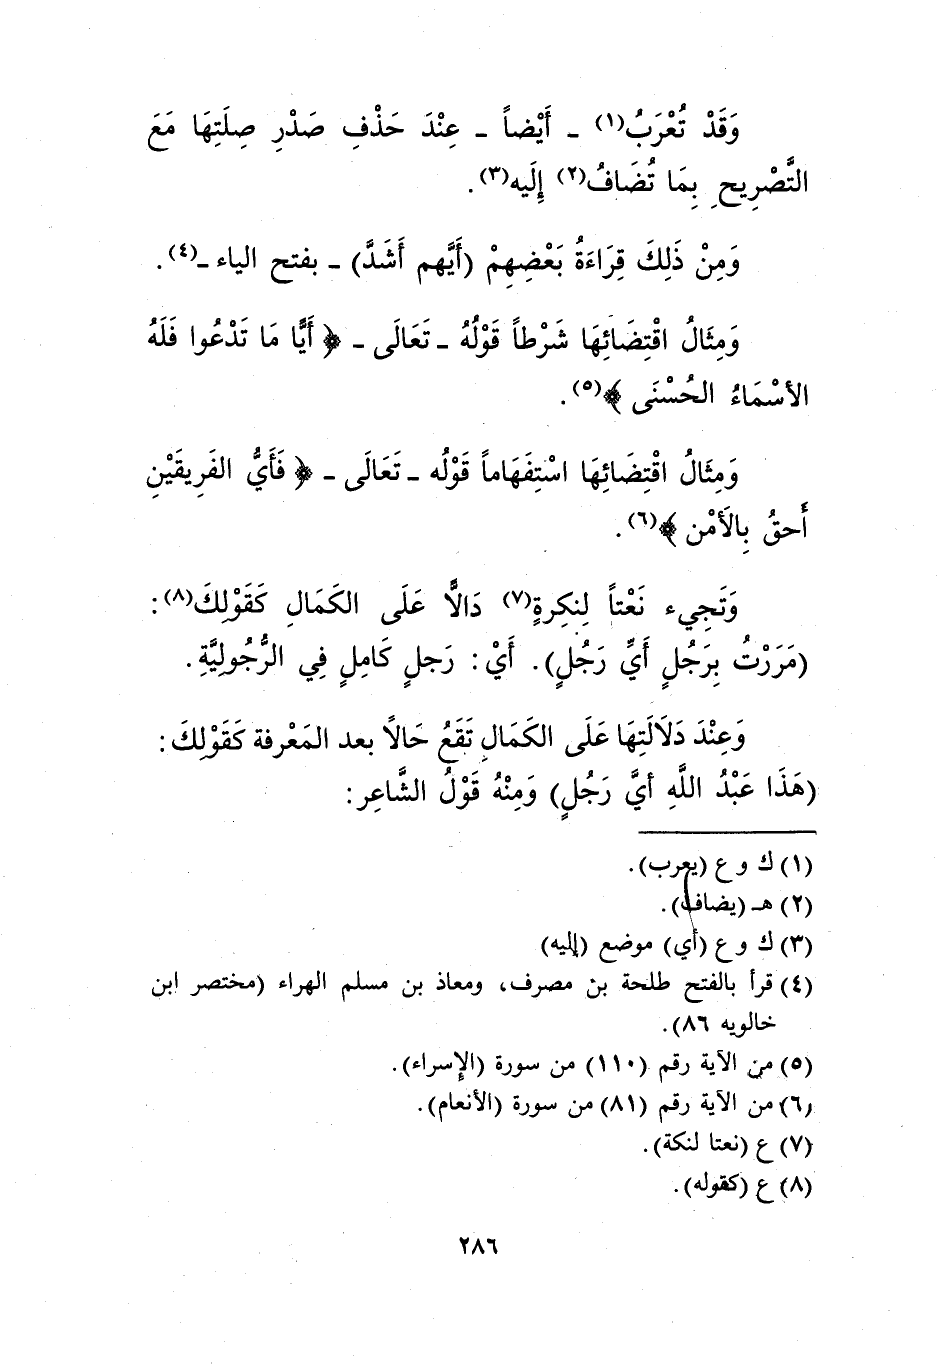 وَقَدْ تُعْرَبُ(١) ـ أَيْضاً ـ عِنْدَ حَذْفِ صَدْرِ صِلَتِهَا مَعَ
التَّصْرِيحِ بِمَا تُضَافُ(٢) إِلَيه(٣).
وَمِنْ ذَلِكَ قِرَاءَةُ بَعْضِهِمْ (أَيَّهم أَشَدَّ) ـ بفتح الياء ـ(٤).
وَمِثَالُ اقْتِضَائِهَا شَرْطاً قَوْلُهُ ـ تَعَالَى ـ ﴿ أَيًّا مَا تَدْعُوا فَلَهُ
الأسْمَاءُ الحُسْنَى ﴾(٥).
وَمِثَالُ اقْتِضَائِهَا اسْتِفَهَاماً قَوْلُه ـ تَعَالَى ـ ﴿ فَأَيُّ الفَرِيقَيْنِ
أَحقُ بِالأَمْنِ ﴾(٦).
وَتَجِيء نَعْتاً لِنكِرةٍ(٧) دَالاًّ عَلَى الكَمَالِ كَقَوْلِكَ(٨):
(مَرَرْتُ بِرَجُلٍ أَيِّ رَجُلٍ). أَيْ: رَجلٍ كَامِلٍ فِي الرُّجُولِيَّةِ.
وَعِنْدَ دَلَالَتِهَا عَلَى الكَمَالِ تَقَعُ حَالًا بعد المَعْرفة كَقَوْلِكَ:
(هَذَا عَبْدُ اللَّهِ أيَّ رَجُلٍ) وَمِنْهُ قَوْلُ الشَّاعِر:
(١) ك و ع (يعرب).
(٢) هـ (يضاف).
(٣) ك و ع (أي) موضع (إليه)
(٤) قرأ بالفتح طلحة بن مصرف، ومعاذ بن مسلم الهراء (مختصر ابن
خالويه ٨٦).
(٥) من الآية رقم (١١٠) من سورة (الإسراء).
(٦) من الآية رقم (٨١) من سورة (الأنعام).
(٧) ع (نعتا لنكة).
(٨) ع (كقوله).
٢٨٦